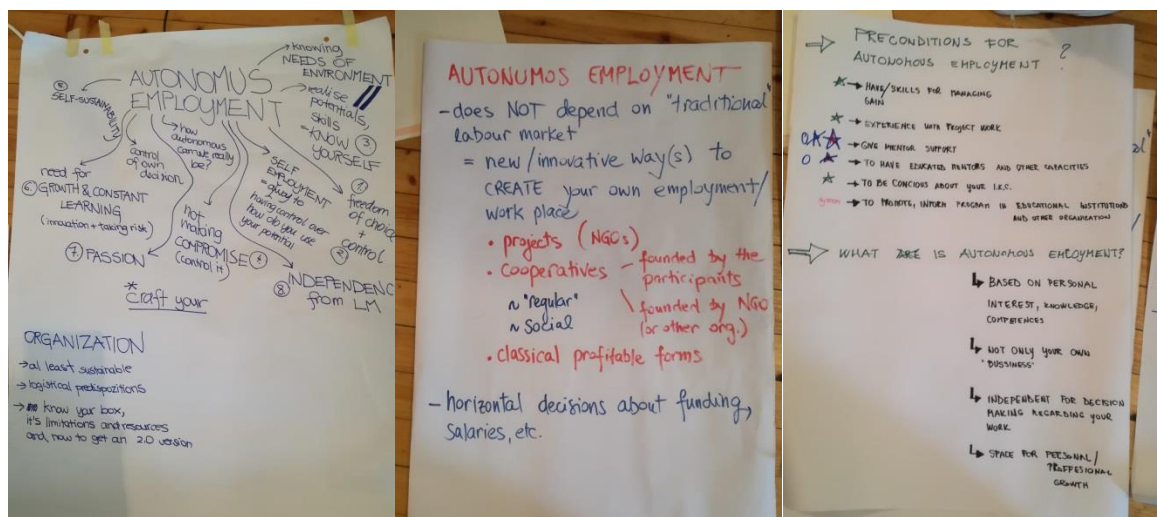 AUTONOMUS
EMPLOYMENT
→ knowing
NEEDS OF
ENVIRONMENT
→ realise
potentials,
skills
= KNOW ③
YOURSELF
⑤
SELF-SUSTAINABILITY
→ how
autonomous
can we really
be?
control
of own
decision
need for
⑥ GROWTH & CONSTANT
LEARNING
(innovation + taking risk)
SELF
EMPLOYMENT
=
having control over
how do you use
your potential
①
freedom
of choice
+
control
②
not
making
COMPROMISE ④
(control it)
⑦ PASSION
⑧ INDEPENDENC
from LM
*
craft your
ORGANIZATION
→ al least sustainable
→ logistical predispozitions
→ know your box,
it's limitations and resources
and, how to get an 2.0 version
AUTONUMOS EMPLOYMENT
- does NOT depend on "traditional"
labour market
= new/innovative way(s) to
CREATE your own employment/
work place
• projects (NGOs)
• cooperatives - founded by the
participants
~ "regular" \ founded by NGO
~ social (or other org.)
• classical profitable forms
- horizontal decisions about funding,
salaries, etc.
⇒ PRECONDITIONS FOR
AUTONOMOUS EMPLOYMENT ?
☆ → HAVE/SKILLS FOR MANAGING
GAIN
☆ → EXPERIENCE WITH PROJECT WORK
→ GIVE MENTOR SUPPORT
→ TO HAVE EDUCATED MENTORS AND OTHER CAPACITIES
☆ → TO BE CONCIOUS ABOUT YOUR I.K.C.
→ TO PROMOTE, INFORM PROGRAM IN EDUCATIONAL INSTITUTIONS
AND OTHER ORGANIZATION
⇒ WHAT IS AUTONOMOUS EMPLOYMENT?
↳ BASED ON PERSONAL
INTEREST, KNOWLEDGE,
COMPETENCES
↳ NOT ONLY YOUR OWN
"BUSSINESS"
↳ INDEPENDENT FOR DECISION
MAKING REGARDING YOUR
WORK
↳ SPACE FOR PERSONAL/
PROFFESIONAL
GROWTH